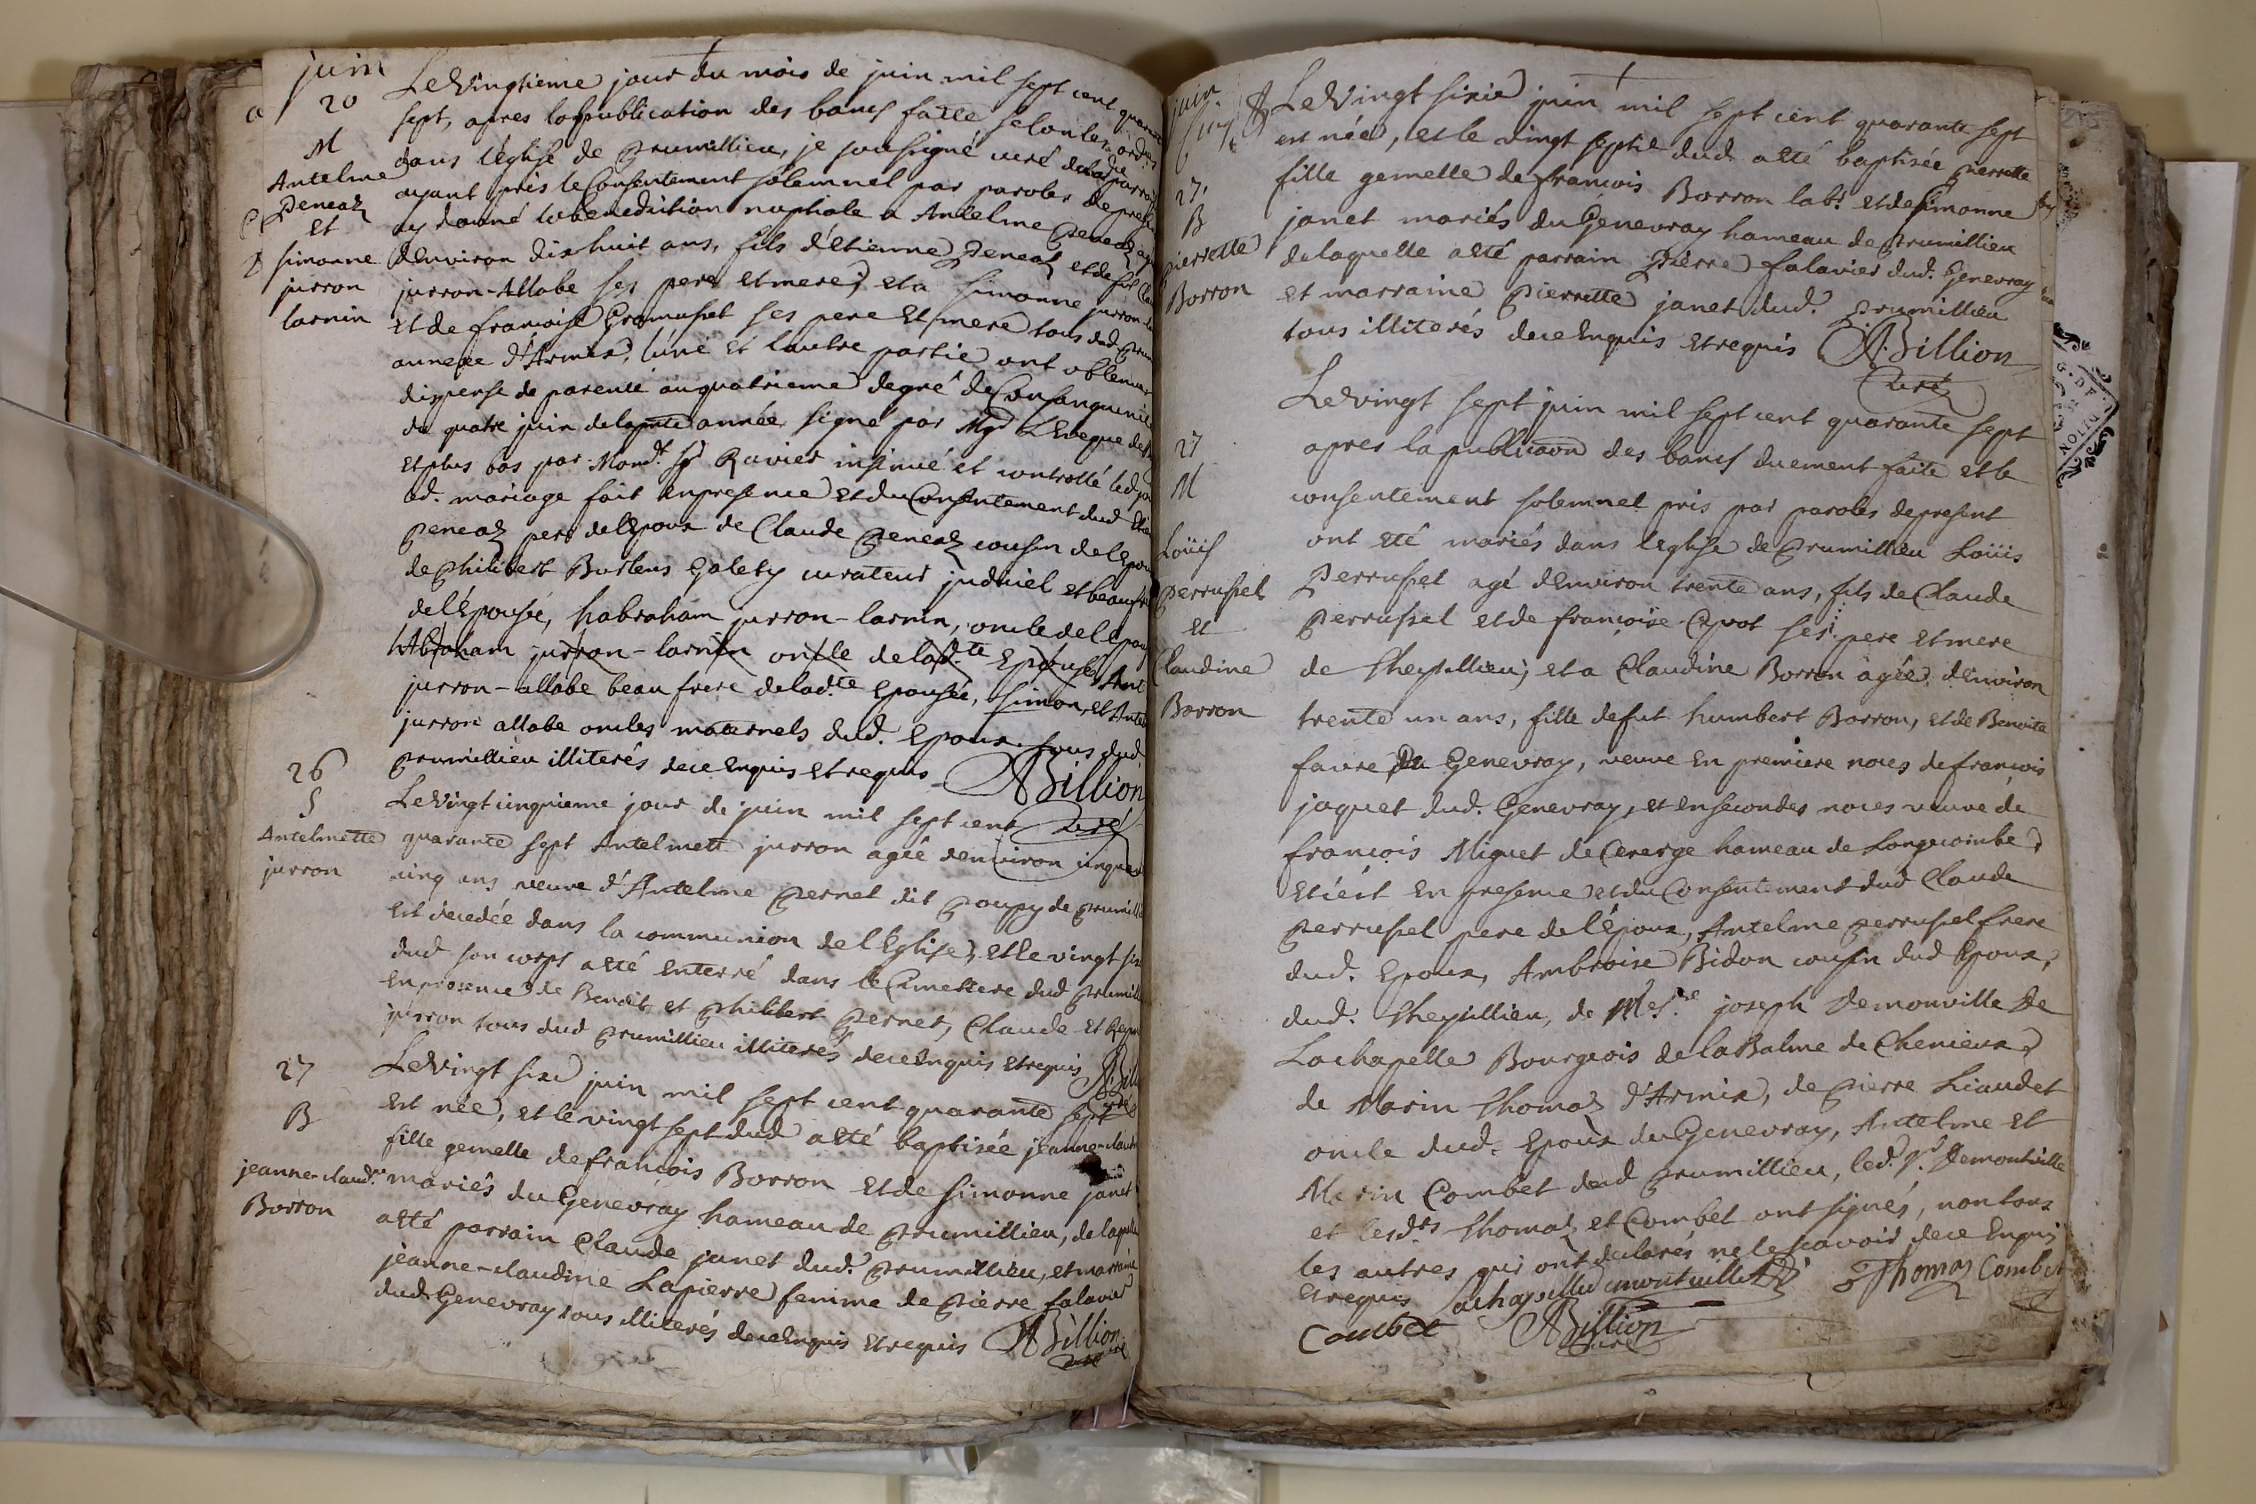 juin
20
M
Antelme
peneaz
Et
simonne
jurron
larnin
Le Vingtieme jour du mois de juin mil sept cent quarante
sept, apres la publication des bancs faite selon les ordres
dans l'église de prumillieu, je soussigné curé dudit
ayant pris le Consentement solemnel par paroles de present
ay donné la benediction nuptiale a Antelme peneaz
d'Environ dixhuit ans, fils d'Etienne peneaz et de
jurron-allabe ses pere Et mere, et a simonne jurron
Et de francoise Gromussel ses pere Et mere tous dud.
annexe d'Armix, l'une Et l'autre partie ont obtenue
dispense de parenté au quatrieme degré de Consanguinité
du quatre juin de la pnte année signé par Mgr L'Eveque de
Et plus bas par Mond. sgr Ravier insinué et controllé led.
led. mariage fait En presence et du Consentement dud.
peneaz pere de l'Epoux de Claude peneaz cousin de l'Epoux
de philibert Burlens Galety curateur judiciel et beaufrere
de l'Epousée, habraham jurron-larnin, oncle de l'Epouse
habraham jurron-larnin oncle de lad.te Epouse, Ant
jurron-allabe beau frere de lad.te Epousée, simon, et Ante
jurron allabe oncles maternels dud. Epoux tous dud.
prumillieu illiterés de ce Enquis et requis ABillion
curé
26
S
Antelmette
jurron
Le Vingt cinquieme jour de juin mil sept cent
quarante sept Antelmett jurron agée d'environ cinquante
cinq ans veuve d'Antelme pernet dit poupy de prumillieu
Est decedée dans la communion de l'Eglise, Et le vingt six
dud son corps a été Enterré dans le Cimetiere dud prumillieu
En presence de Benoit, et philibert pernet, Claude Et
jurron tous dud prumillieu illiterés de ce Enquis Et requis ABill
27
B
jeanne-claud.ne
Borron
Le Vingt sixe juin mil sept cent quarante sept
Est née, Et le vingt sept dud a été baptisée jeanne-claudine
fille gemelle de francois Borron Et de simonne janet
mariés du Genevray hameau de prumillieu, de laquelle
a été parrain Claude janet dud. prumillieu, et marraine
jeanne-claudine Lapierre femme de pierre falavier
dud. Genevray tous illiterés de ce Enquis Et requis ABillion
curé
juin
27.
B
pierrette
Borron
Le Vingt sixie juin mil sept cent quarante sept
est née, et le vingt septie dud. a été baptisée pierrette
fille gemelle de francois Borron labr. et de simonne
janet mariés du Genevray hameau de prumillieu
de laquelle a été parrain pierre falavier dud. Genevray
et marraine pierrette janet dud. prumillieu
tous illiterés de ce Enquis et requis ABillion
curé
27
M
Loüis
perrussel
Et
Claudine
Borron
Le vingt sept juin mil sept cent quarante sept
apres la publicaon des bancs duement faite et le
consentement solemnel pris par paroles de present
ont eté mariés dans l'Eglise de prumillieu Loüis
perrussel agé d'Environ trente ans, fils de Claude
perrussel et de françoise Cyvot ses pere et mere
de Cheysillieu, et a Claudine Borron agée d'Environ
trente un ans, fille de fut humbert Borron, et de Benoite
favre du Genevray, veuve En premiere noces de francois
jaquet dud. Genevray, et en secondes noces veuve de
francois Miguet de Cererge hameau de Longecombe,
Et c'est En presence et du Consentement dud Claude
perrussel pere de l'Epoux, Antelme perrussel frere
dud. Epoux, Ambroise Bidon cousin dud Epoux,
dud. Cheysillieu, de Mes.re joseph Demonville de
Lachapelle Bourgeois de la Balme de Chenieux,
de Marin Thomaz d'Armix, de pierre Liaudet
oncle dud. Epoux du Genevray, Antelme et
Marin Combet dud prumillieu, led. Sr. Demontville
et lesd.ts Thomaz et Combet ont signés, non tous
les autres qui ont declarés ne le scavoir de ce Enquis
Et requis Thomaz Combet
Combet ABillion
curé
DIJON